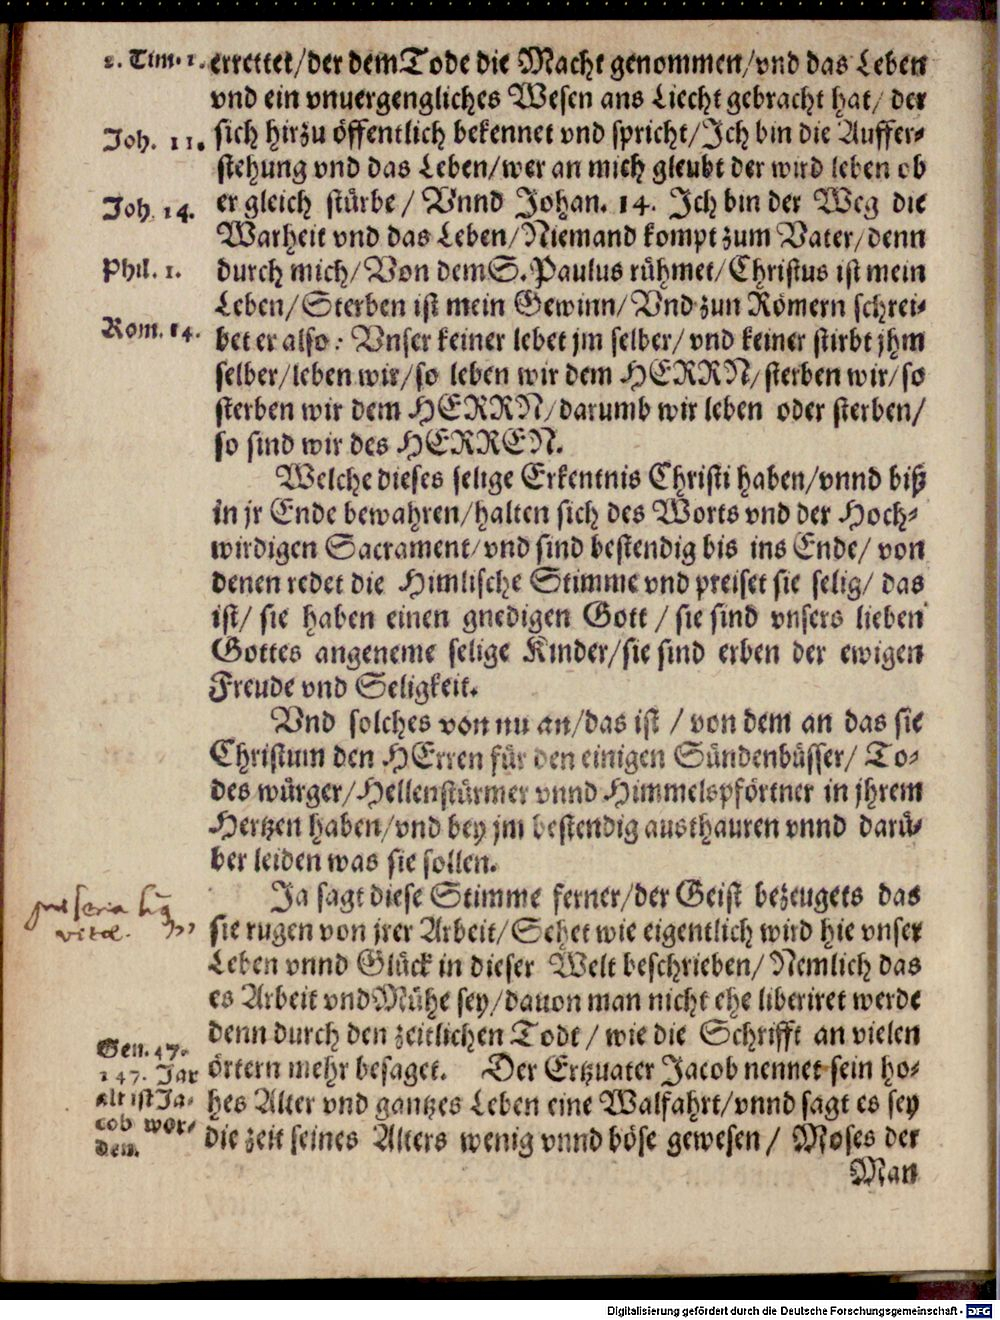 2. Tim. 1. errettet/der dem Tode die Macht genommen/vnd das Leben
vnd ein vnuergengliches Wesen ans Liecht gebracht hat/ der
Joh. 11. sich hirzu öffentlich bekennet vnd spricht/Ich bin die Auffer-
stehung vnd das Leben/wer an mich gleubt der wird leben ob
Joh. 14. er gleich stürbe/ Vnnd Johan. 14. Ich bin der Weg die
Warheit vnd das Leben/Niemand kompt zum Vater/denn
Phil. 1. durch mich/Von dem S. Paulus rühmet/Christus ist mein
Leben/Sterben ist mein Gewinn/Vnd zun Römern schrei-
Rom. 14. bet er also: Vnser keiner lebet jm selber/ vnd keiner stirbt jhm
selber/leben wir/so leben wir dem HERRN/sterben wir/so
sterben wir dem HERRN/darumb wir leben oder sterben/
so sind wir des HERREN.
Welche dieses selige Erkentnis Christi haben/vnnd biß
in jr Ende bewahren/halten sich des Worts vnd der Hoch-
wirdigen Sacrament/vnd sind bestendig bis ins Ende/ von
denen redet die Himlische Stimme vnd preiset sie selig/ das
ist/ sie haben einen gnedigen Gott / sie sind vnsers lieben
Gottes angeneme selige Kinder/sie sind erben der ewigen
Freude vnd Seligkeit.
Vnd solches von nu an/das ist / von dem an das sie
Christum den HErren für den einigen Sündenbüsser/ To-
des würger/Hellenstürmer vnnd Himmelspförtner in jhrem
Hertzen haben/vnd bey jm bestendig austhauren vnnd darü-
ber leiden was sie sollen.
Ja sagt diese Stimme ferner/der Geist bezeugets das
vitae. sie rugen von jrer Arbeit/Sehet wie eigentlich wird hie vnser
Leben vnnd Glück in dieser Welt beschrieben/ Nemlich das
es Arbeit vnd Mühe sey/dauon man nicht ehe liberiret werde
denn durch den zeitlichen Todt / wie die Schrifft an vielen
Gen. 47.
147. Jar örtern mehr besaget. Der Ertzuater Jacob nennet sein ho-
alt ist Ja- hes Alter vnd gantzes Leben eine Walfahrt/vnnd sagt es sey
cob wor-
den. die zeit seines Alters wenig vnnd böse gewesen / Moses der
Man
Digitalisierung gefördert durch die Deutsche Forschungsgemeinschaft - DFG